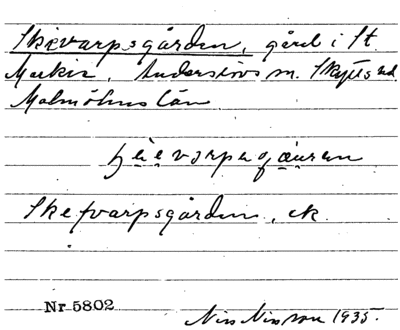 Skevarpsgården, gård i St.
Markie, Anderslövs sn. Skytts hd.
Malmöhus län
Skefvarpsgården, ek.
Nr 5802
Nils Nilsson 1935.